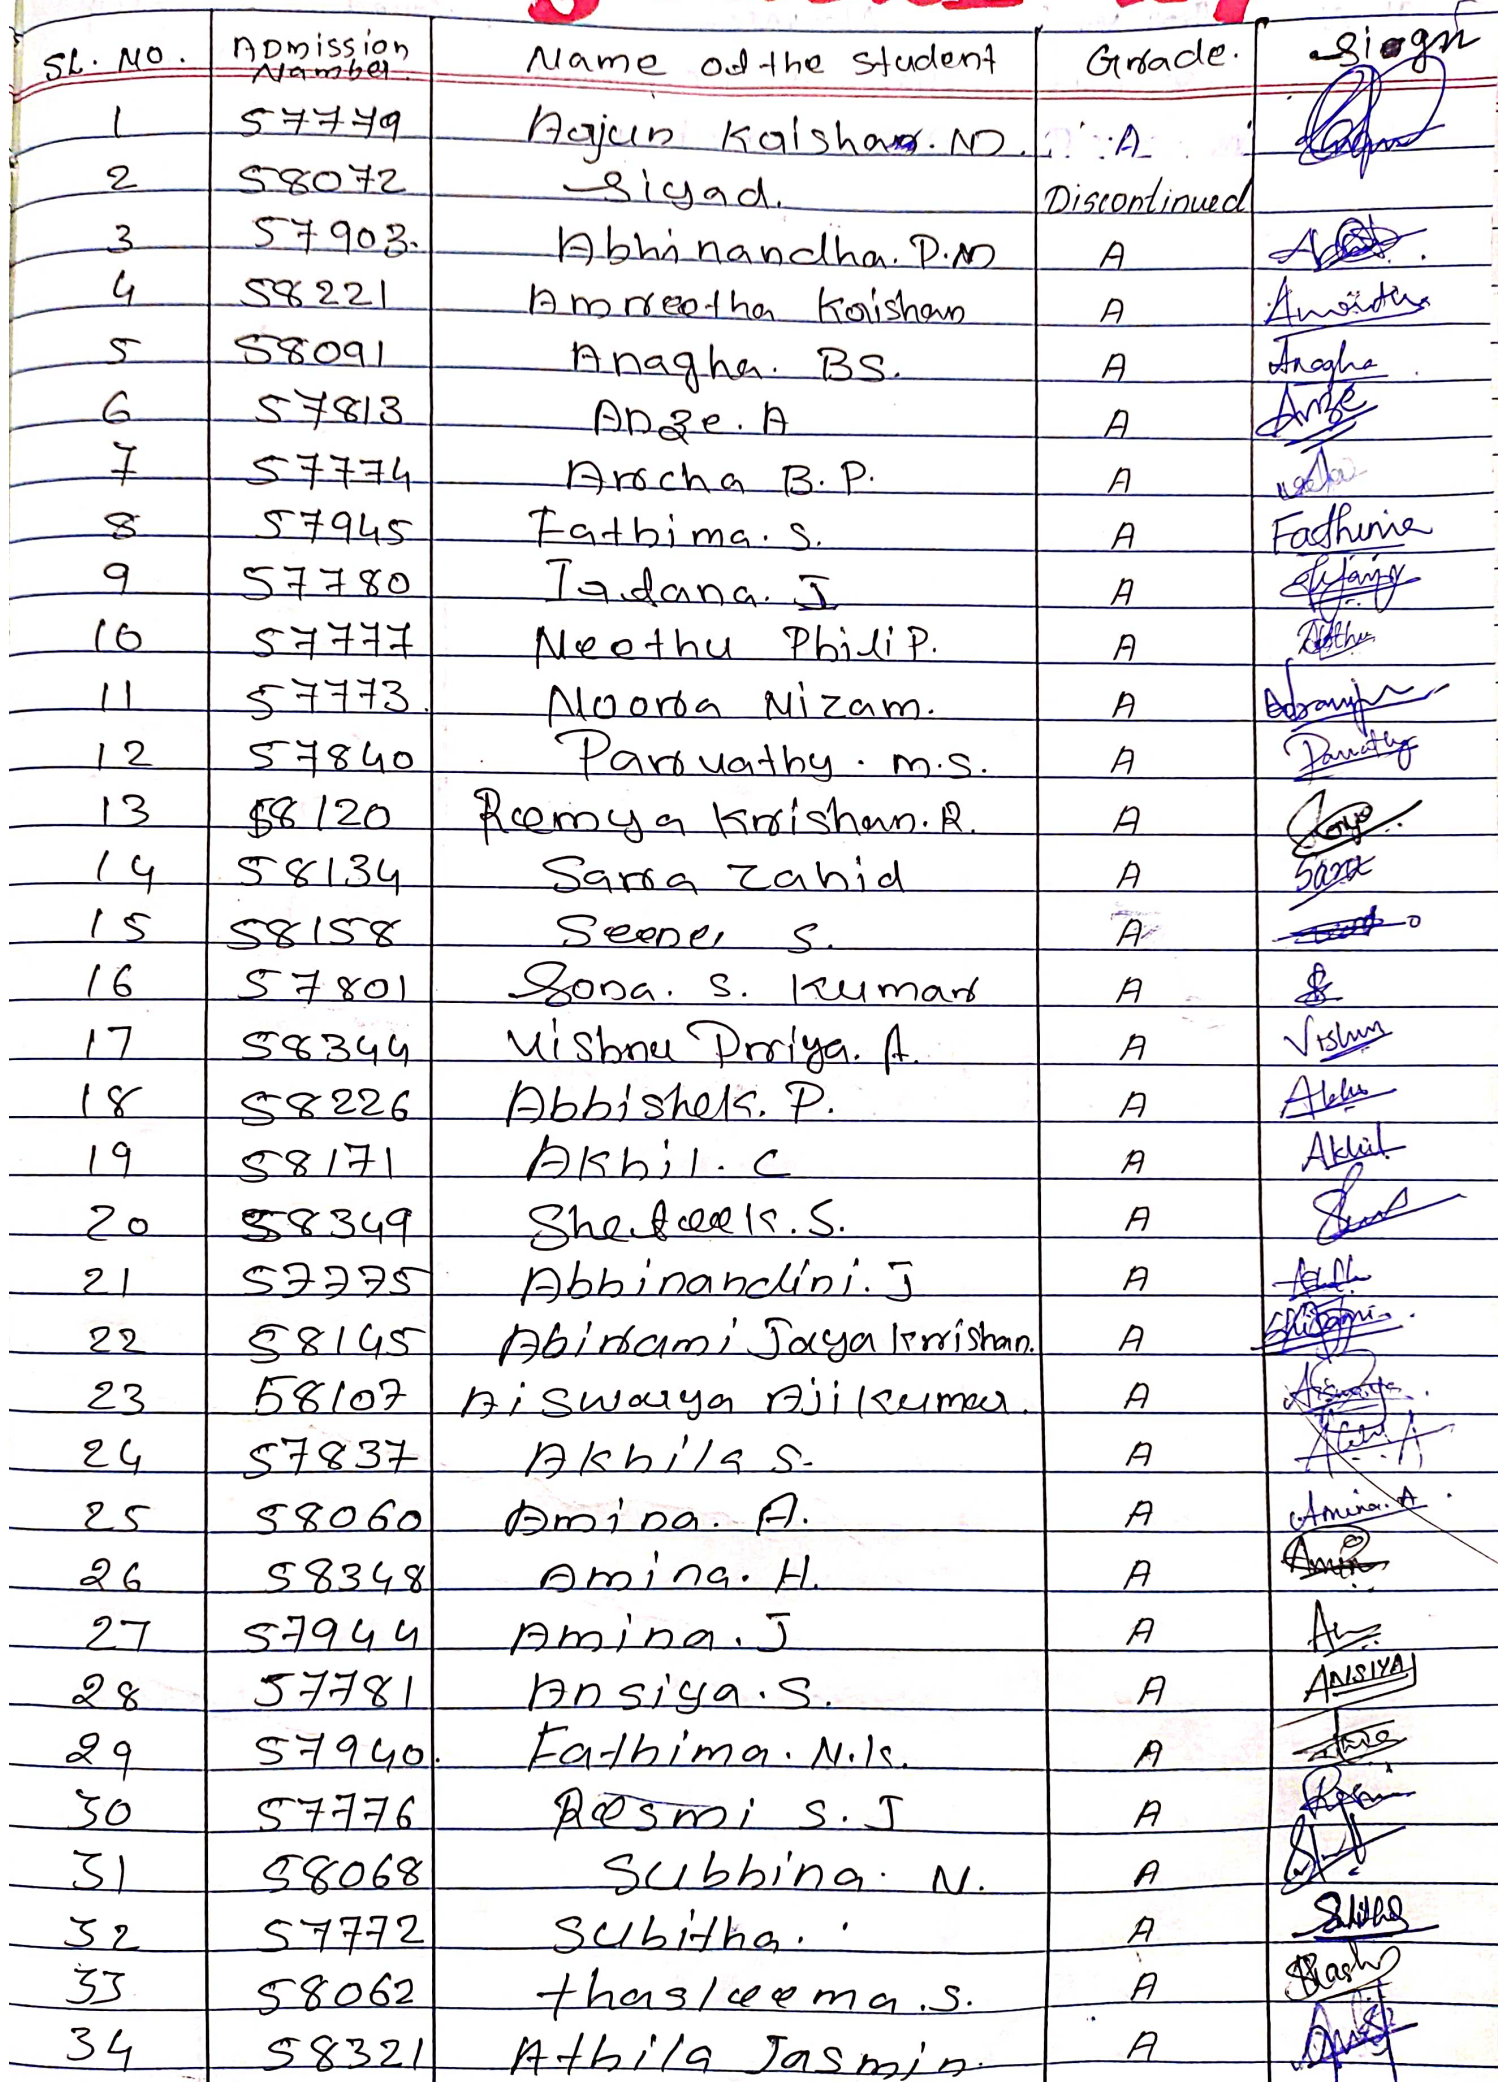 SL. NO. Admission Number. Name of the student Grade. Siogn
1 57779 Arjun Krishna. N. A
2 58072 Siyad. Discontinued
3 57903. Abhinandha. P.N A
4 58221 Amreetha Krishan A Amritha
5 58091 Anagha. BS. A Anagha
6 57813 Anze. A A Anze
7 57774 Arocha B. P. A
8 57945 Fathima. S. A Fathima
9 57780 Indana. J A
10 57777 Neethu Philip. A
11 57773. Noora Nizam. A
12 57840 Parvathy. M.S. A Parvathy
13 58120 Remya Krishan. R. A
14 58134 Sara Zahid A Sara
15 58158 Seena S. A
16 57801 Sona. S. Kumar A
17 58344 Vishnu Priya. A. A Vishnu
18 58226 Abhishek. P. A
19 58171 Akhil. C A Akhil
20 58349 Shefeek. S. A
21 57775 Abhinandini. J A
22 58145 Abirami Jayakrishan. A
23 58107 Aiswarya Ajikumar. A Aiswarya
24 57837 Akhila S. A
25 58060 Amina. A. A Amina. A
26 58348 Amina. H. A
27 57944 Amina. J A
28 57781 Ansiya. S. A ANSIYA
29 57940. Fathima. N.K. A
30 57776 Resmi S. J A
31 58068 Subhina. N. A
32 57772 Subitha. A Subitha
33 58062 thasleema. S. A
34 58321 Athila Jasmin. A